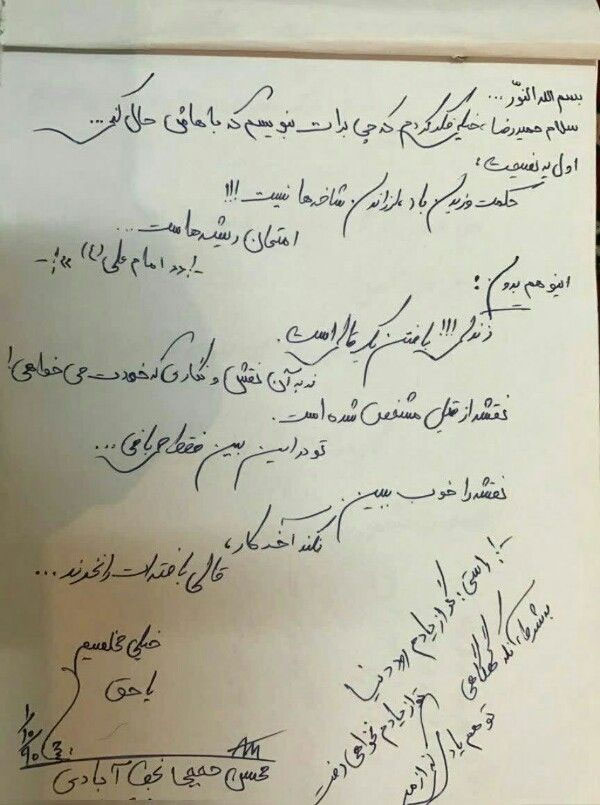 بسم الله النّور...
سلام حمیدرضا، خیلی فکر کردم که چی برات بنویسم که باهاش حال کنی...
اول یه نصیحت:
حکمت وزیدن باد، لرزاندن شاخه ها نیست!!!
امتحان ریشه هاست...
-!«« امام علی (ع) »»!-
اینو هم بدون:
زندگی!!! بافتن یک قالی است.
نه به آن نقش و نگاری که خودت می خواهی!
نقشه از قبل مشخص شده است.
تو در این بین فقط می بافی...
نقشه را خوب ببین
نکند آخر کار،
قالی بافته ات را نخرند...
-!: راستی: گر از یادم رود دنیا
تو از یادم نخواهی رفت
به شرط آنکه گهگاهی
تو هم یاد کنی از من
خیلی مخلصیم
یا حق
۹۰/۱۰/۱
محسن حججی نجف آبادی